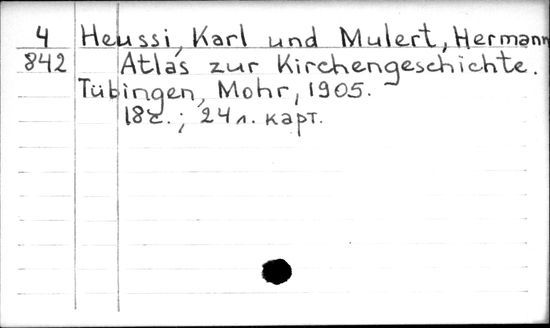 4 Heussi, Karl und Mulert, Hermann
842 Atlas zur Kirchengeschichte.
Tübingen, Mohr, 1905.
18с.; 24 л. карт.